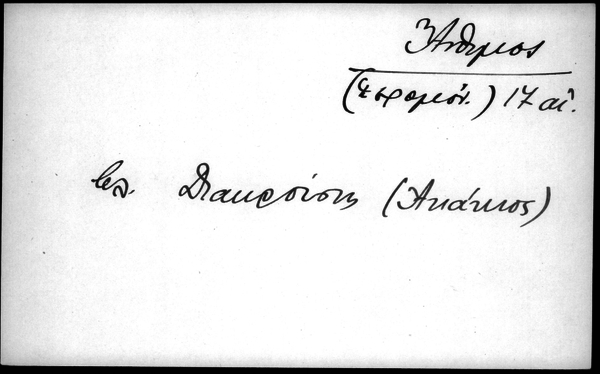 Ἄνθιμος
(ἱερομόν.) 17 αἰ.
βλ. Διακρούσης (Ἀκάκιος)